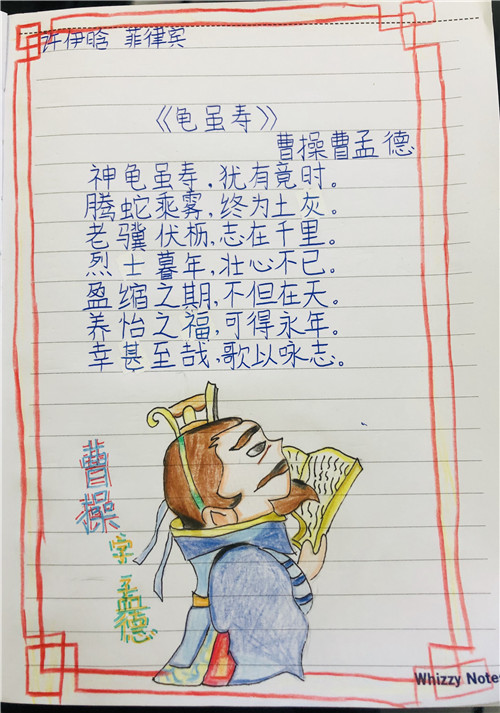 许伊晗 菲律宾
《龟虽寿》
曹操曹孟德
神龟虽寿,犹有竟时。
腾蛇乘雾,终为土灰。
老骥伏枥,志在千里。
烈士暮年,壮心不已。
盈缩之期,不但在天。
养怡之福,可得永年。
幸甚至哉,歌以咏志。
曹操
字孟德
Whizzy Note